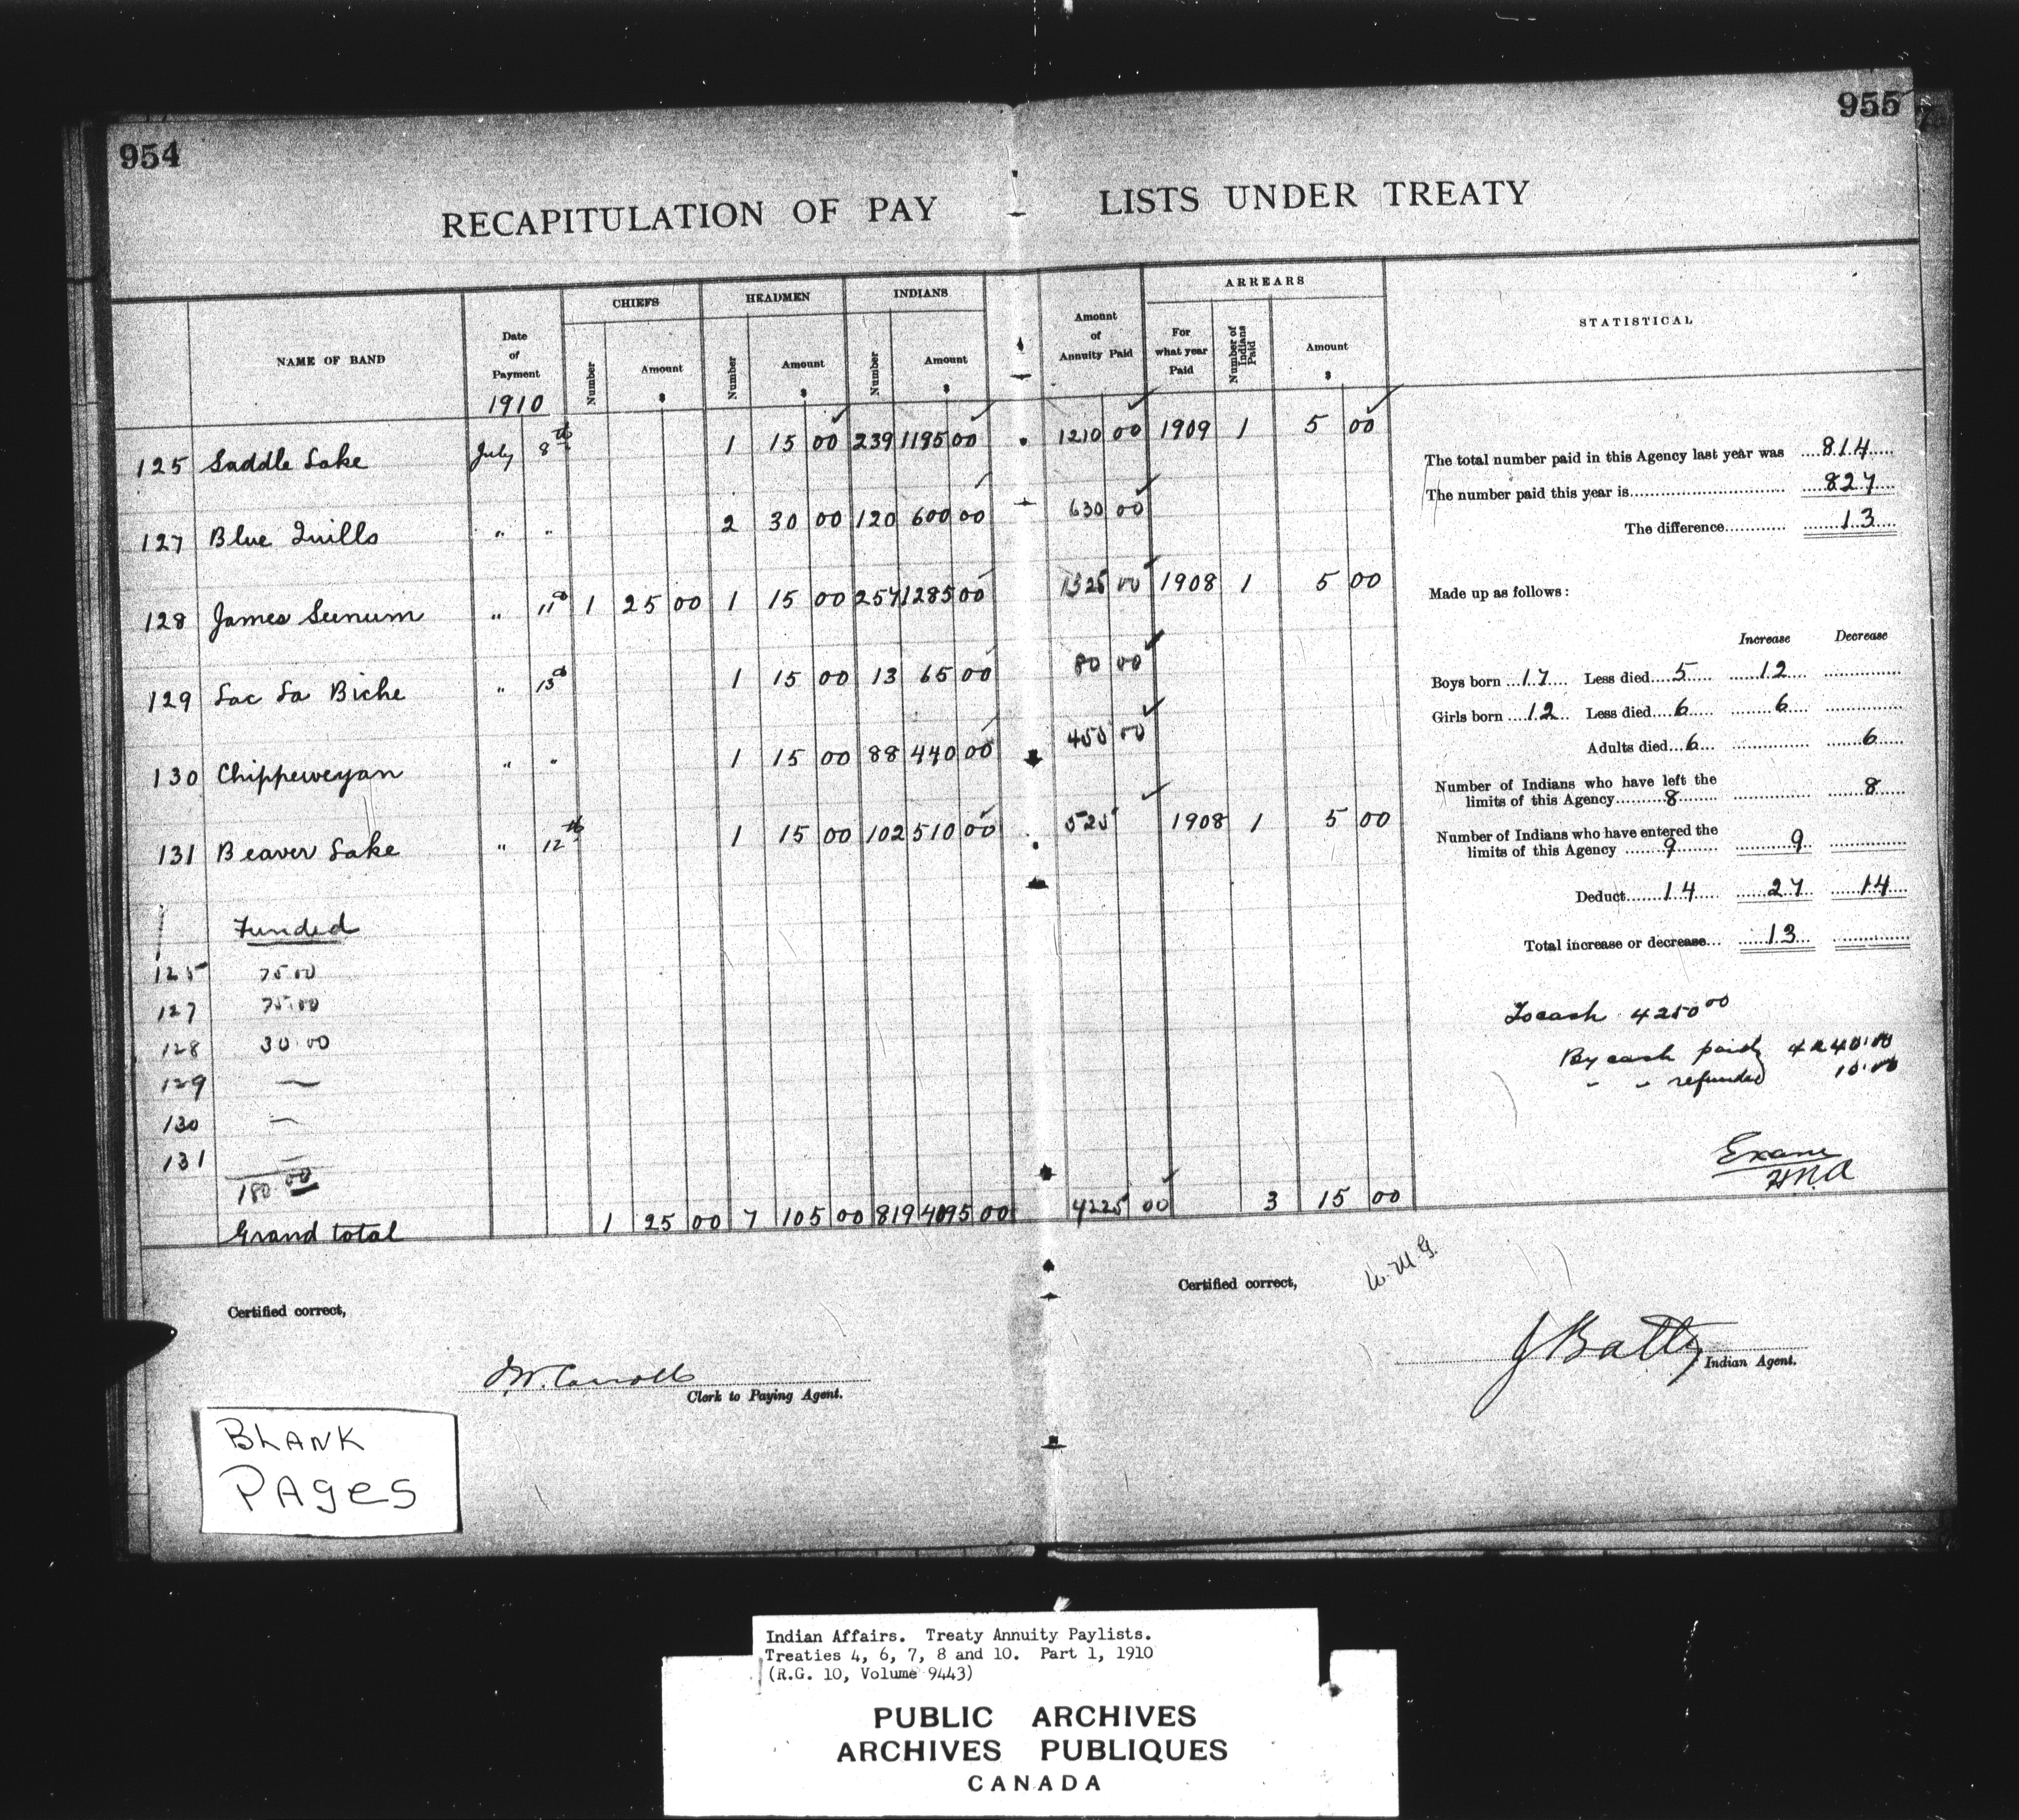 954
955
RECAPITULATION OF PAY LISTS UNDER TREATY
NAME OF BAND
Date of Payment
1910
CHIEFS
Number
Amount
$
HEADMEN
Number
Amount
$
INDIANS
Number
Amount
$
Amount of Annuity Paid
ARREARS
For what year Paid
Number of Indians Paid
Amount
$
STATISTICAL
125 Saddle Lake July 8th 1 15 00 239 1195 00 1210 00 1909 1 5 00
127 Blue Quills " " 2 30 00 120 600 00 630 00
128 James Seenum " 11th 1 25 00 1 15 00 257 1285 00 1325 00 1908 1 5 00
129 Lac La Biche " 13th 1 15 00 13 65 00 80 00
130 Chippeweyan " " 1 15 00 88 440 00 455 00
131 Beaver Lake " 12th 1 15 00 102 510 00 525 1908 1 5 00
Funded
125 75 00
127 75.00
128 30 00
129 —
130 —
131 —
180 00
Grand total 1 25 00 7 105 00 819 4095 00 4225 00 3 15 00
The total number paid in this Agency last year was 814
The number paid this year is 827
The difference 13
Made up as follows:
Increase Decrease
Boys born 17 Less died 5 12
Girls born 12 Less died 6 6
Adults died 6 6
Number of Indians who have left the
limits of this Agency 8 8
Number of Indians who have entered the
limits of this Agency 9 9
Deduct 14 27 14
Total increase or decrease 13
To cash 4250 00
By cash paid 4240.00
" " refunded 10.00
Exam
Certified correct,
Clerk to Paying Agent.
Certified correct,
W.M.G.
J Batty
Indian Agent.
BLANK
PAges
Indian Affairs. Treaty Annuity Paylists.
Treaties 4, 6, 7, 8 and 10. Part 1, 1910
(R.G. 10, Volume 9443)
PUBLIC ARCHIVES
ARCHIVES PUBLIQUES
CANADA